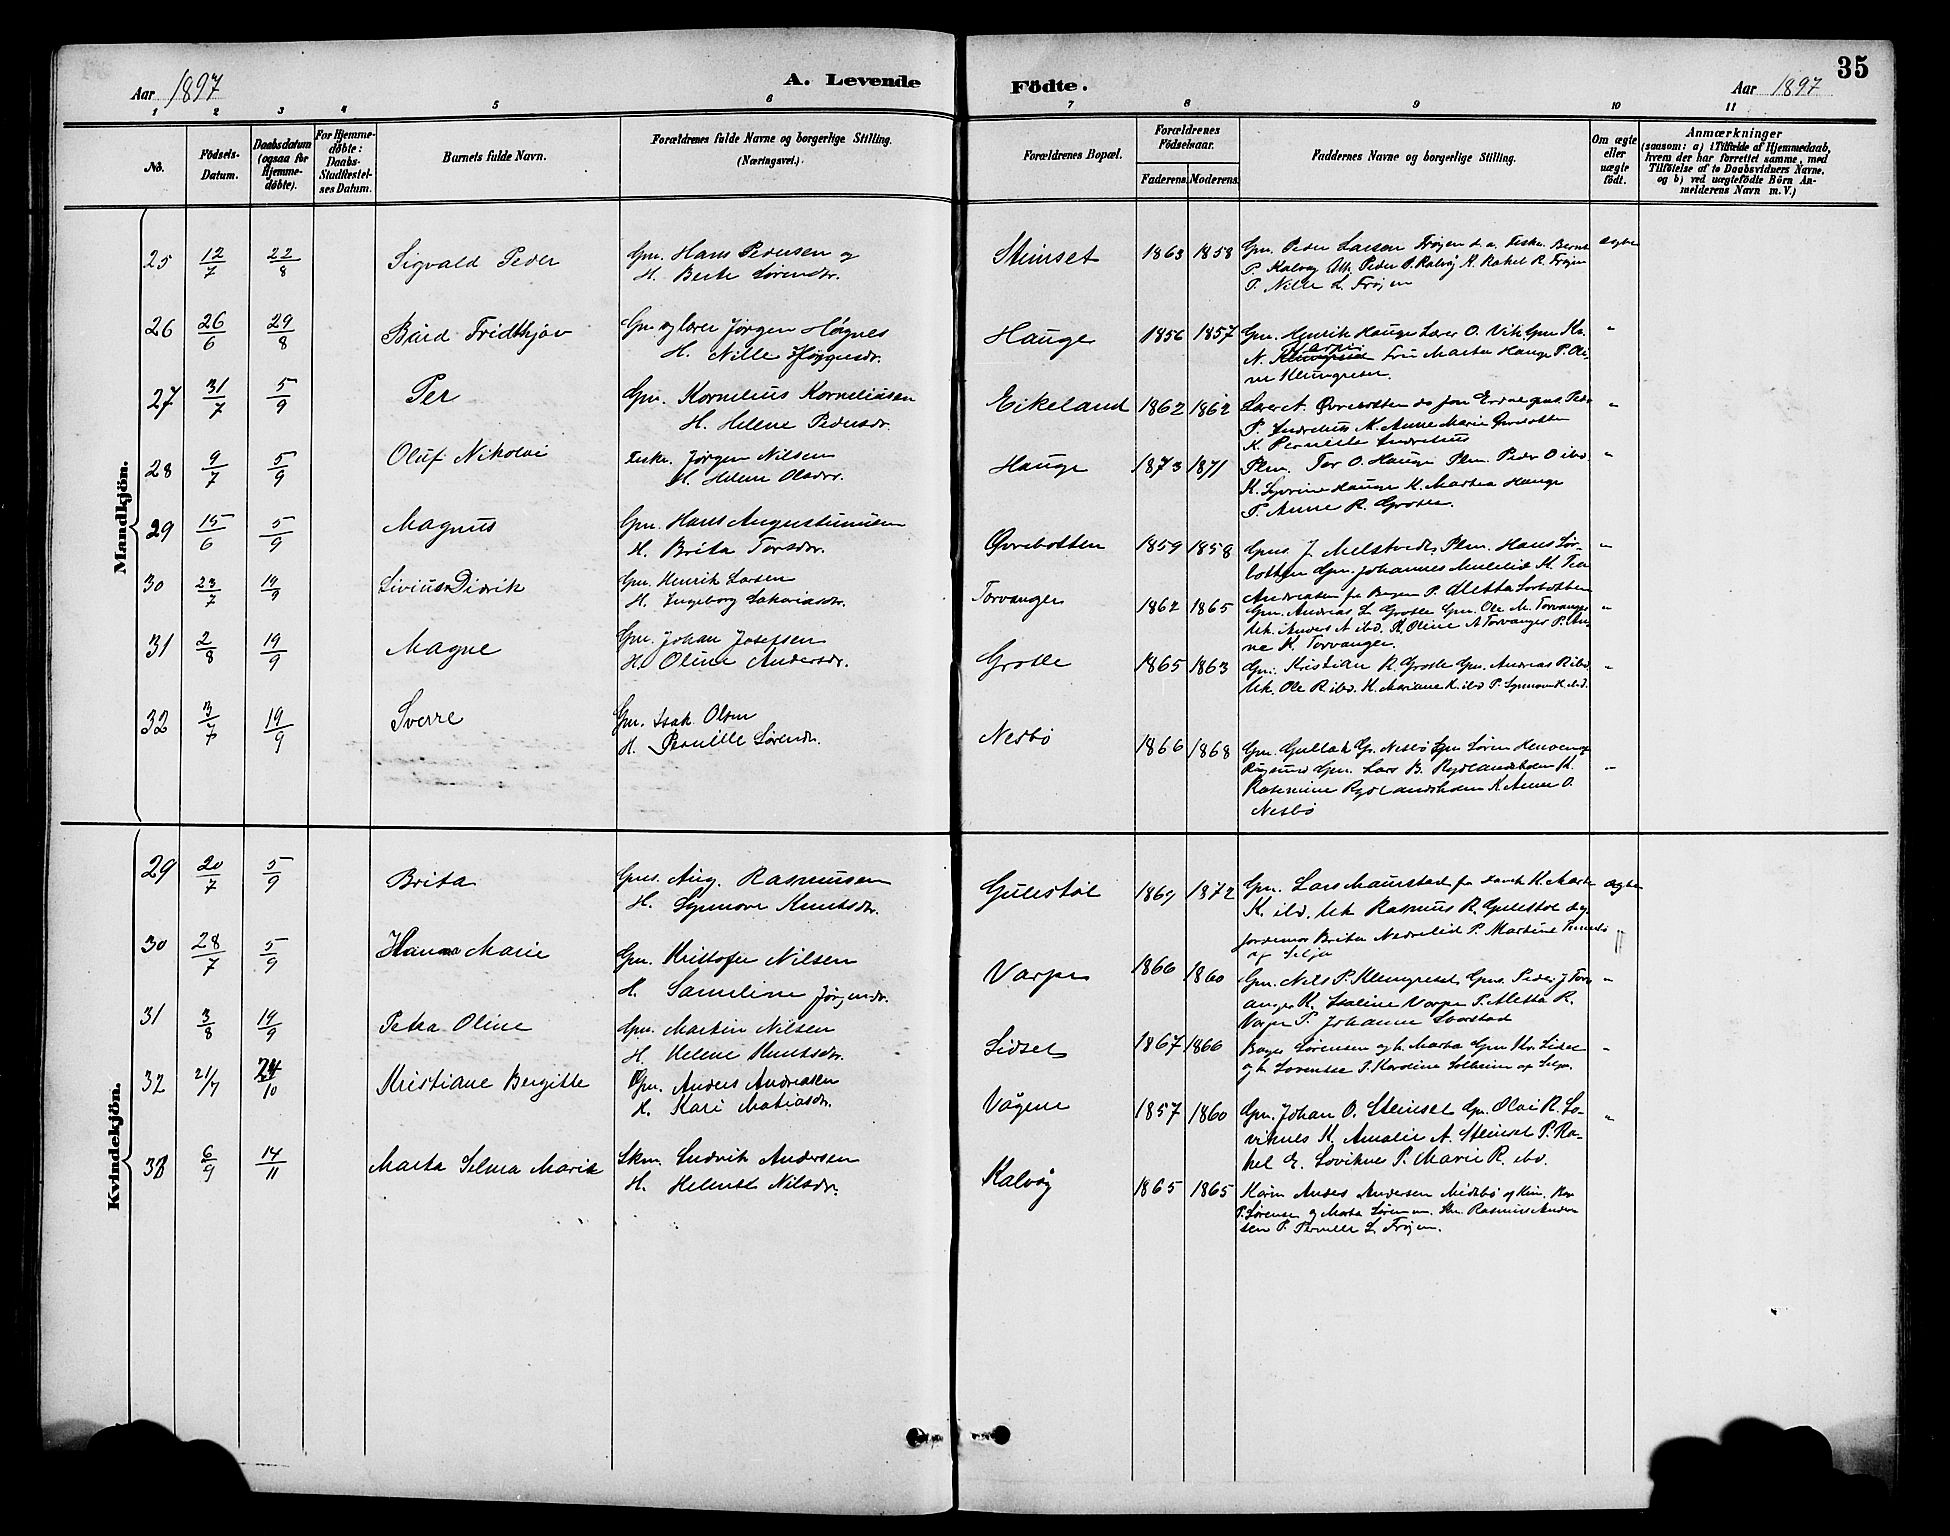 Aar 1897
A. Levende
Födte.
Aar 1897
35
1 2 3 4 5 6 7 8 9 10 11
No.
Födsels-Datum.
Daabsdatum (ogsaa for Hjemme-döbte).
For Hjemme-döbte: Daabs-Stadfæstel-ses Datum.
Barnets fulde Navn.
Forældrenes fulde Navne og borgerlige Stilling.
(Næringsvei.)
Forældrenes Bopæl.
Forældrenes Födselsaar.
Faderens. Moderens.
Faddernes Navne og borgerlige Stilling.
Om ægte eller uægte födt.
Anmærkninger
(saasom: a) i Tilfælde af Hjemmedaab,
hvem der har forrettet samme, med
Tilföielse af to Daabsvidners Navne.
og b) ved uægtefödte Börn An-
melderens Navn m. V.)
Mandkjön.
25 12/7 22/8 Sigvald Peder Gm. Hans Pedersen og
H. Berte Sørensdr.
Steinset 1863 1858 Gm. Peder Larsen Frøjen
P. Kalvøg Uk. Peder P. Kalvøg K. Rakel R. Frøjen
P. Nille L. Frøjen
ægte
26 26/6 29/8 Bård Fridthjov Gm. og lærer Jørgen Høgnes
H. Nille
Hauge 1856 1857 Gm. Henrik Hauge Lærer O. Vik Gm. Ka.
N. Fru Marta Hauge P. Oli-
ne Klungreset
"
27 31/7 5/9 Per Gm. Kornelius Korneliusen
H. Helene Pedersdr.
Eikeland 1862 1862 Lærer A. Øvrebotten
P. Indrehus K. Anne Marie Øvrebotten
K. Pernille Indrehus
"
28 9/7 5/9 Oluf Nikolai Fisker Jørgen Nilsen
H. Helene Olsdr.
Hauge 1873 1871 Plm. Tor O. Hauge Plm. Peder O ibd
K. Severine Hauge K. Martha Hauge
P. Anne R. Grotle.
"
29 15/6 5/9 Magnus Gm. Hans Augustinusen
H. Brita Torsdr.
Øvrebotten 1859 1858 Gms. J. Melstveds Plm. Hans Sør-
botten Gm. Johannes K.
Andreasen fra Bergen P. Aletta Sørbotten
"
30 23/7 19/9 Sivius Didrik Gm. Henrik Larsen
H. Ingeborg Sakariasdr.
Torvanger 1862 1865 Gm. Andreas L Grotle Gm. Ole M. Torvanger
Uk. Anders A ibd. K. Oline A Torvanger P. An-
ne K. Torvanger.
"
31 2/8 19/9 Magne Gm. Johan Josefsen
H. Oline Andersdr.
Grotle 1865 1863 Gm. Kristian R. Grotle Gm. Andreas R ibd
Uk. Ole R ibd. K. Mariane K. ibd P. Synnøve K. ibd.
"
32 3/7 19/9 Sverre Gm. Isak Olsen
H. Pernille Sørensdr.
Nesbø 1866 1868 Gm. Gullak Gr. Nesbø Gm Søren
Rugsund Gm. Lars B. Rydlandsholm K.
Rasmine Rydlandsholm K Anne O.
Nesbø
"
Kvindekjön.
29 20/7 5/9 Brita Gms. Aug. Rasmusen
H. Synnøve Knutsdr.
Gulestøl 1869 1872 Gm. Lars Maurstad fra Davik K. Marte
K. ibd. Uk Rasmus R. Gulestøl
Jordemor Brita Nedrelid P. Martine
og Silja
ægte
30 28/7 5/9 Hanna Marie Gm. Kristofer Nilsen
H. Sameline Jørgensdr.
Varpe 1866 1860 Gm. Nils P. Klungreset Gms. Peder J Torv-
anger K. Varpe P. Aletta R.
Varpe P. Johanne
"
31 3/8 19/9 Petra Oline Gm. Martin Nilsen
H. Helene Knutsdr.
Lidset 1867 1866 Sørensen og h. Marta Gm Kr. Lidset
og h. Loventse P. Karoline Solheim
"
32 21/7 24/10 Kristiane Bergitte Gm. Anders Andreasen
H. Kari Matiasdr.
Vågene 1857 1860 Gm. Johan O. Steinset Gm. Olai R. Lo-
viknes K. Amalie A. Steinset P. Ra-
kel E. Lovikne P. Marie R. ibd.
"
33 6/9 14/11 Marta Selma Marie Skm. Ludvik Andersen
H. Helene Nilsdr.
Kalvøg 1865 1865 Anders Andersen Midtbø
P. Sørensen og Marta Sørensen. Rasmus Ander-
sen P. Pernille L. Frøjen.